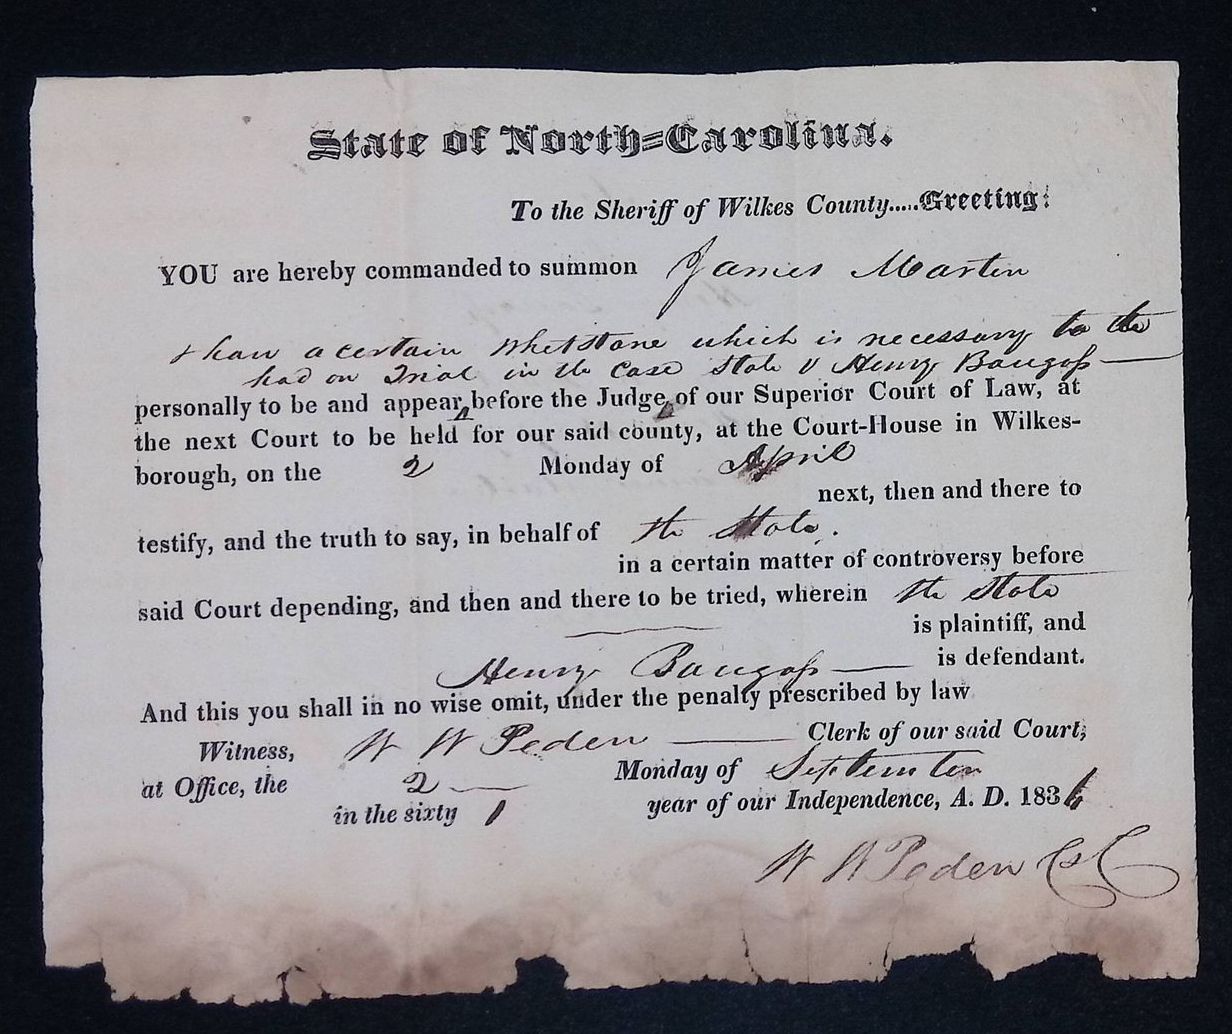 State of North-Carolina.
To the Sheriff of Wilkes County.....Greeting:
YOU are hereby commanded to summon James Marten
& have a certain Whetstone which is necessary to the
had on Trial in the Case State V Henry Baugoss
personally to be and appear before the Judge of our Superior Court of Law, at
the next Court to be held for our said county, at the Court-House in Wilkes-
borough, on the 2 Monday of April
next, then and there to
testify, and the truth to say, in behalf of the State.
in a certain matter of controversy before
said Court depending, and then and there to be tried, wherein the State
is plaintiff, and
Henry Baugoss is defendant.
And this you shall in no wise omit, under the penalty prescribed by law
Witness, W W Peden Clerk of our said Court,
at Office, the 2 Monday of September
in the sixty 1 year of our Independence, A. D. 1836
W W Peden CSC